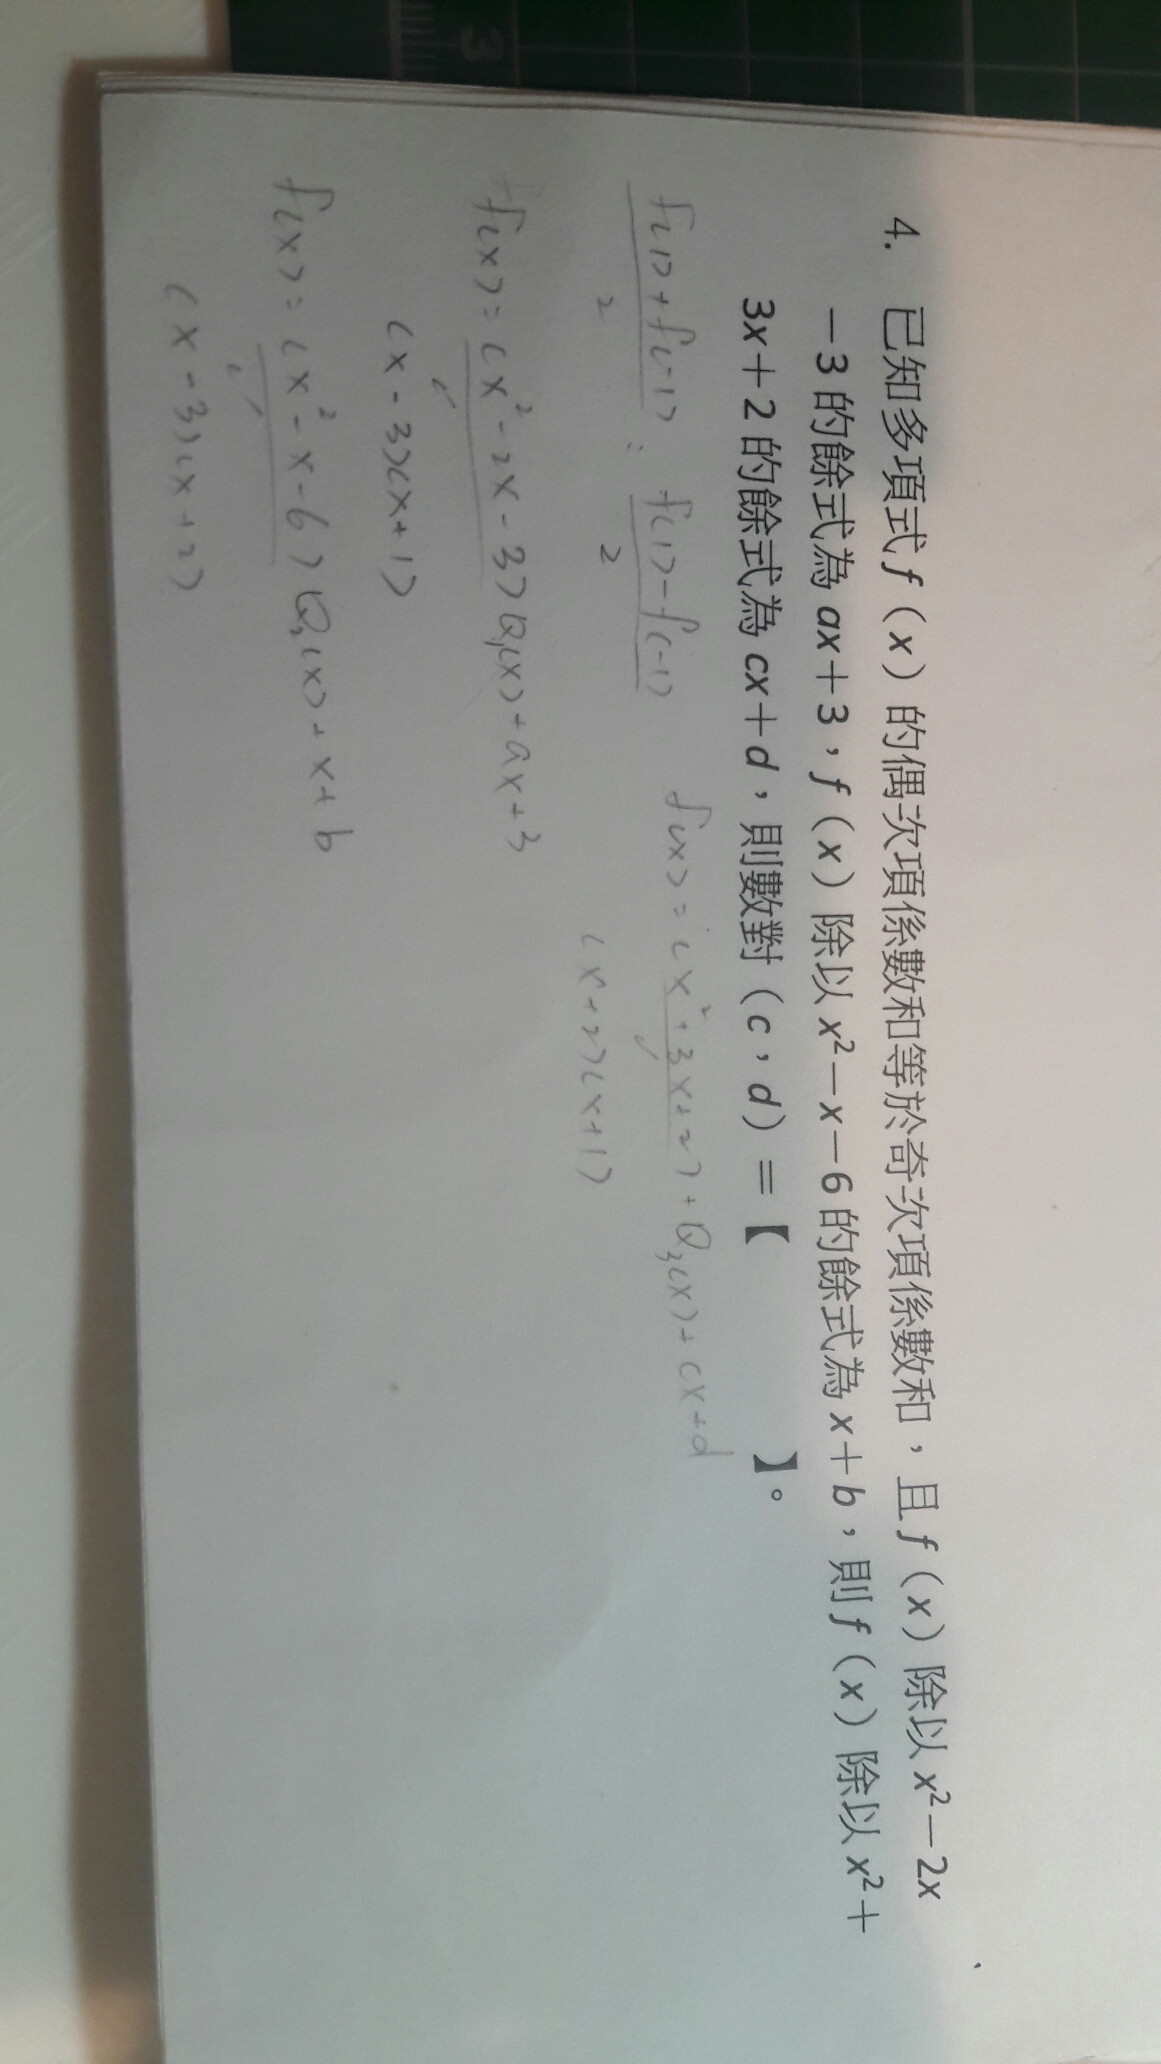 3
4. 已知多項式 f（x）的偶次項係數和等於奇次項係數和，且 f（x）除以 x²－2x
－3 的餘式為 ax＋3，f（x）除以 x²－x－6 的餘式為 x＋b，則 f（x）除以 x²＋
3x＋2 的餘式為 cx＋d，則數對（c，d）＝【 】。
f(1)+f(-1) : f(1)-f(-1)
2 2
f(x)=(x²+3x+2)+Q₃(x)+cx+d
(x+2)(x+1)
f(x)=(x²-2x-3)Q₁(x)+ax+3
(x-3)(x+1)
f(x)=(x²-x-6)Q₂(x)+x+b
(x-3)(x+2)